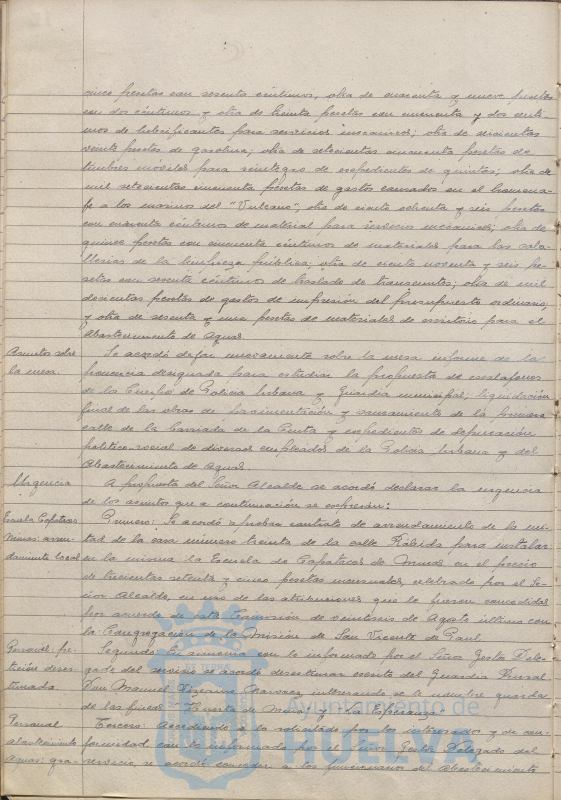 cinco pesetas con sesenta céntimos, otra de cuarenta y nueve pesetas
con dos céntimos y otra de treinta pesetas con cuarenta y dos cénti-
mos de lubrificantes para servicios mecánicos; otra de doscientas
veinte pesetas de gasolina; otra de setecientas cincuenta pesetas de
timbres móviles para reintegro de expedientes de quintas; otra de
mil setecientas cincuenta pesetas de gastos causados en el homena-
je a los marinos del "Vulcano"; otra de ciento ochenta y seis pesetas
con cuarenta céntimos de material para servicios mecánicos; otra de
quince pesetas con cincuenta céntimos de materiales para las caba-
llerías de la limpieza pública; otra de ciento noventa y seis pe-
setas con sesenta céntimos de traslado de transeuntes; otra de mil
doscientas pesetas de gastos de impresión del presupuesto ordinario;
y otra de sesenta y once pesetas de materiales de escritorio para el
Abastecimiento de Aguas.
Asuntos sobre la mesa. Se acordó dejar nuevamente sobre la mesa informe de la
ponencia designada para estudiar la propuesta de escalafones
de los Cuerpos de Policía Urbana y Guardia municipal, liquidación
final de las obras de pavimentación y saneamiento de la primera
calle de la barriada de la Cinta y expedientes de depuración
político-social de diversos empleados de la Policía Urbana y del
Abastecimiento de Aguas.
Urgencia A propuesta del Señor Alcalde se acordó declarar la urgencia
de los asuntos que a continuación se expresan:
Escuela Capataces Primero: Se acordó aprobar contrato de arrendamiento de la mi-
Minas: arren- tad de la casa número treinta de la calle Rábida para instalar
damiento local en la misma la Escuela de Capataces de Minas en el precio
de trescientas setenta y cinco pesetas mensuales, celebrado por el Se-
ñor Alcalde, en uso de las atribuciones que le fueron concedidas
por acuerdo de esta Comisión de veintiseis de Agosto último con
la Congregación de la Misión de San Vicente de Paul.
Personal: pe- Segundo: En armonía con lo informado por el Señor Gestor Dele-
tición deses- gado del servicio se acordó desestimar escrito del Guardia Rural
timada. Don Manuel Narvaez, interesando se le nombre guarda
de las fincas Huerta de Mena y La Esperanza.
Personal Tercero: Accediendo a lo solicitado por los interesados y de con-
abastecimiento formidad con lo informado por el Señor Gestor Delegado del
Aguas: gra- servicio, se acordó conceder a los funcionarios del Abastecimiento
Ayuntamiento de
HUELVA